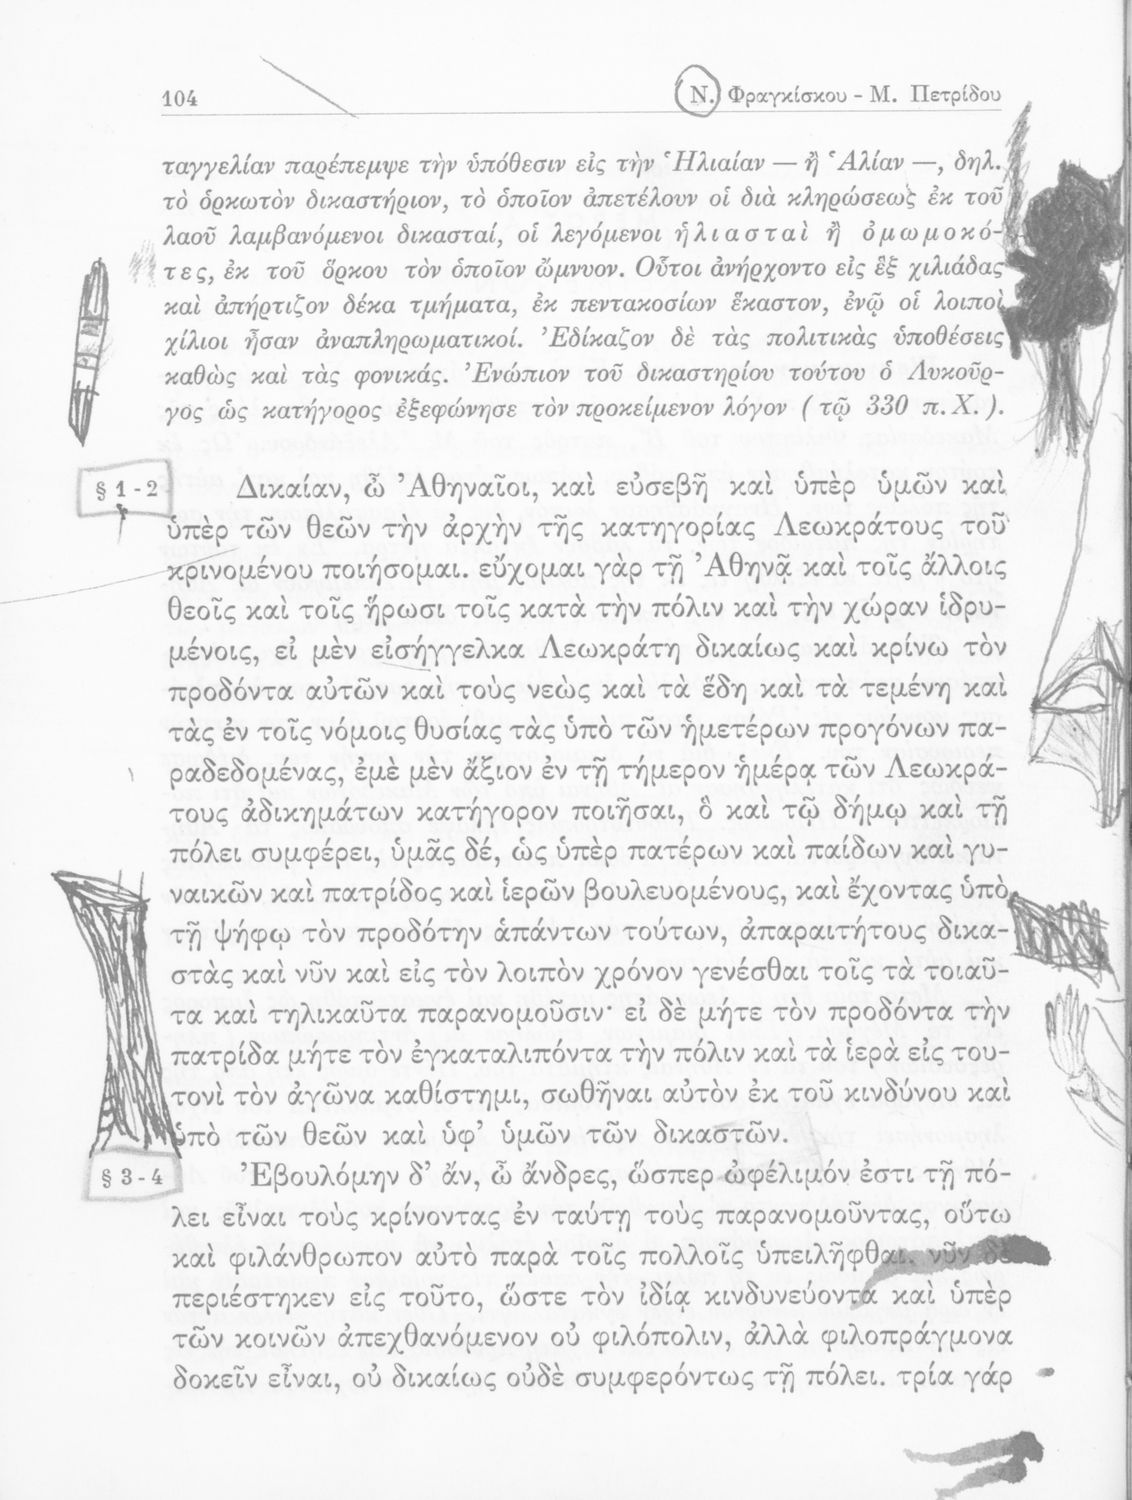 104
Ν. Φραγκίσκου - Μ. Πετρίδου
ταγγελίαν παρέπεμψε τὴν ὑπόθεσιν εἰς τὴν Ἡλιαίαν — ἢ Ἁλίαν —, δηλ.
τὸ ὁρκωτὸν δικαστήριον, τὸ ὁποῖον ἀπετέλουν οἱ διὰ κληρώσεως ἐκ τοῦ
λαοῦ λαμβανόμενοι δικασταί, οἱ λεγόμενοι ἡλιασταὶ ἢ ὀμωμοκό-
τες, ἐκ τοῦ ὅρκου τὸν ὁποῖον ὤμνυον. Οὗτοι ἀνήρχοντο εἰς ἓξ χιλιάδας
καὶ ἀπήρτιζον δέκα τμήματα, ἐκ πεντακοσίων ἕκαστον, ἐνῷ οἱ λοιποὶ
χίλιοι ἦσαν ἀναπληρωματικοί. Ἐδίκαζον δὲ τὰς πολιτικὰς ὑποθέσεις
καθὼς καὶ τὰς φονικάς. Ἐνώπιον τοῦ δικαστηρίου τούτου ὁ Λυκοῦρ-
γος ὡς κατήγορος ἐξεφώνησε τὸν προκείμενον λόγον (τῷ 330 π.Χ.).
§ 1-2 Δικαίαν, ὦ Ἀθηναῖοι, καὶ εὐσεβῆ καὶ ὑπὲρ ὑμῶν καὶ
ὑπὲρ τῶν θεῶν τὴν ἀρχὴν τῆς κατηγορίας Λεωκράτους τοῦ
κρινομένου ποιήσομαι. εὔχομαι γὰρ τῇ Ἀθηνᾷ καὶ τοῖς ἄλλοις
θεοῖς καὶ τοῖς ἥρωσι τοῖς κατὰ τὴν πόλιν καὶ τὴν χώραν ἱδρυ-
μένοις, εἰ μὲν εἰσήγγελκα Λεωκράτη δικαίως καὶ κρίνω τὸν
προδόντα αὐτῶν καὶ τοὺς νεὼς καὶ τὰ ἕδη καὶ τὰ τεμένη καὶ
τὰς ἐν τοῖς νόμοις θυσίας τὰς ὑπὸ τῶν ἡμετέρων προγόνων πα-
ραδεδομένας, ἐμὲ μὲν ἄξιον ἐν τῇ τήμερον ἡμέρᾳ τῶν Λεωκρά-
τους ἀδικημάτων κατήγορον ποιῆσαι, ὃ καὶ τῷ δήμῳ καὶ τῇ
πόλει συμφέρει, ὑμᾶς δέ, ὡς ὑπὲρ πατέρων καὶ παίδων καὶ γυ-
ναικῶν καὶ πατρίδος καὶ ἱερῶν βουλευομένους, καὶ ἔχοντας ὑπὸ
τῇ ψήφῳ τὸν προδότην ἁπάντων τούτων, ἀπαραιτήτους δικα-
στὰς καὶ νῦν καὶ εἰς τὸν λοιπὸν χρόνον γενέσθαι τοῖς τὰ τοιαῦ-
τα καὶ τηλικαῦτα παρανομοῦσιν· εἰ δὲ μήτε τὸν προδόντα τὴν
πατρίδα μήτε τὸν ἐγκαταλιπόντα τὴν πόλιν καὶ τὰ ἱερὰ εἰς του-
τονὶ τὸν ἀγῶνα καθίστημι, σωθῆναι αὐτὸν ἐκ τοῦ κινδύνου καὶ
ὑπὸ τῶν θεῶν καὶ ὑφ’ ὑμῶν τῶν δικαστῶν.
§ 3-4 Ἐβουλόμην δ’ ἄν, ὦ ἄνδρες, ὥσπερ ὠφέλιμόν ἐστι τῇ πό-
λει εἶναι τοὺς κρίνοντας ἐν ταύτῃ τοὺς παρανομοῦντας, οὕτω
καὶ φιλάνθρωπον αὐτὸ παρὰ τοῖς πολλοῖς ὑπειλῆφθαι. νῦν δὲ
περιέστηκεν εἰς τοῦτο, ὥστε τὸν ἰδίᾳ κινδυνεύοντα καὶ ὑπὲρ
τῶν κοινῶν ἀπεχθανόμενον οὐ φιλόπολιν, ἀλλὰ φιλοπράγμονα
δοκεῖν εἶναι, οὐ δικαίως οὐδὲ συμφερόντως τῇ πόλει. τρία γάρ